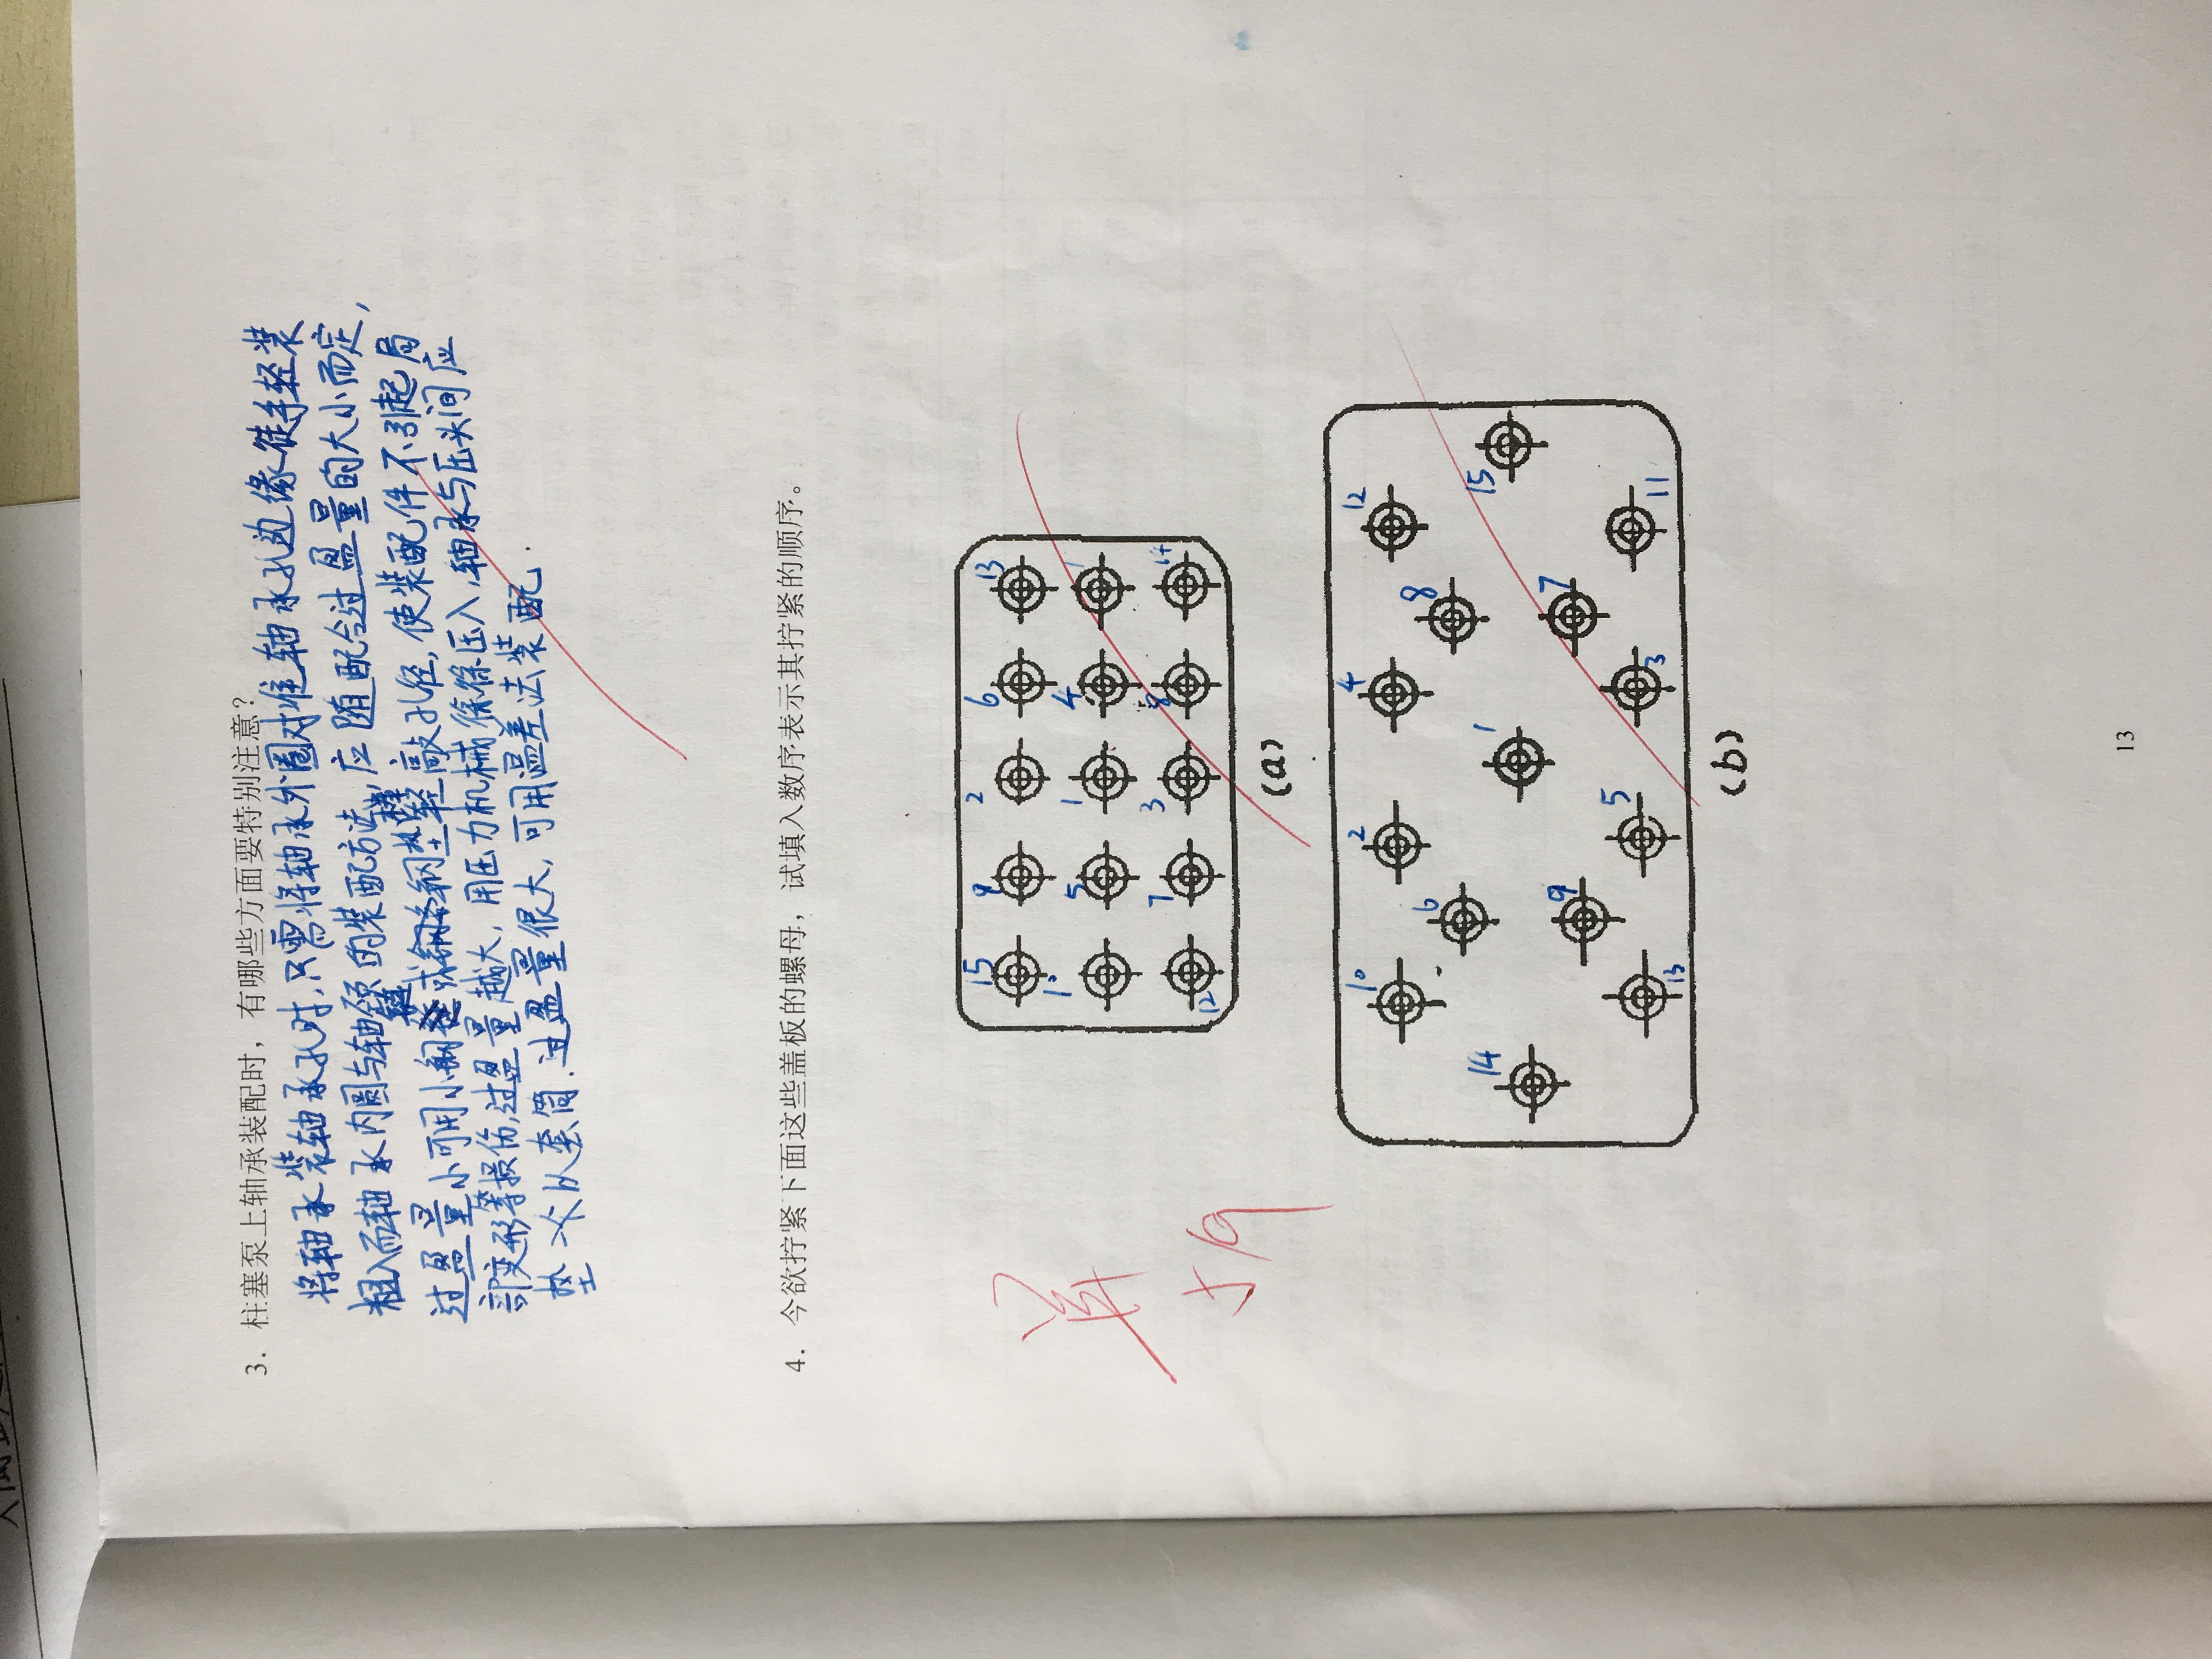 3. 柱塞泵上轴承装配时，有哪些方面要特别注意？
将轴承装轴承孔时,只需将轴承外圈对准轴承孔边缘徒手轻装
粗入而轴承内圆与轴颈的装配方法,应随配合过盈量的大小而定,
过盈量小可用小铜锤或钢垫轻敲孔径,使装配件不引起局
部变形等损伤,过盈量越大,用压力机械徐徐压入,轴承与压头间应
垫一个以套筒.过盈量很大,可用温差法装配.
4. 今欲拧紧下面这些盖板的螺母，试填入数序表示其拧紧的顺序。
15 9 2 6 13
10 5 1 4
12 7 3 8 14
(a)
10 2 4 12
6 8
14 1 15
9 7
13 5 3 11
(b)
13